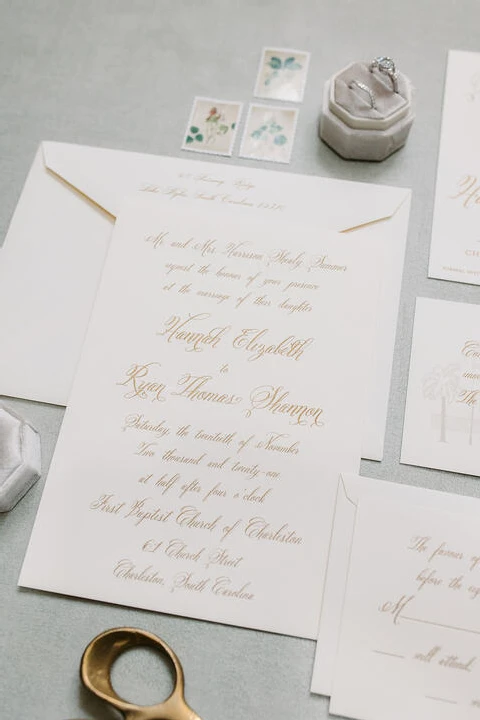 Lake Wylie, South Carolina
Mr. and Mrs. Harrison Shealy Sumner
request the honour of your presence
at the marriage of their daughter
Hannah Elizabeth
to
Ryan Thomas Shannon
Saturday, the twentieth of November
Two thousand and twenty-one
at half after four o'clock
First Baptist Church of Charleston
61 Church Street
Charleston, South Carolina
Ha
The
The favour
before the
M
will attend